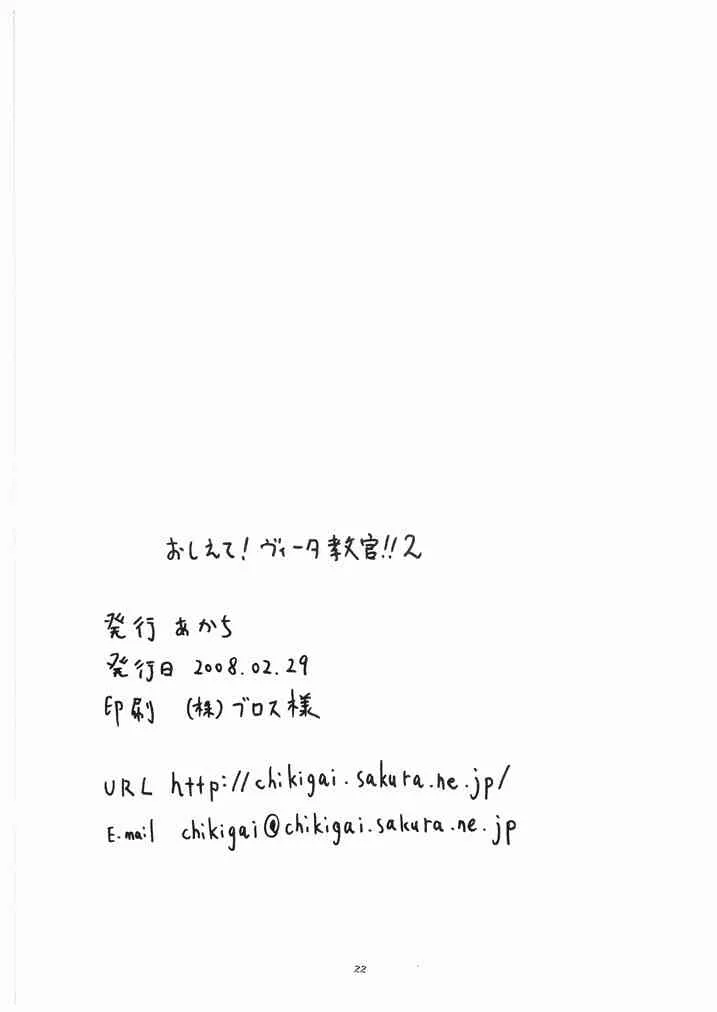 おしえて!ヴィータ教官!!2
発行 あかち
発行日 2008.02.29
印刷 (株)ブロス様
URL http://chikigai.sakura.ne.jp/
E-mail chikigai@chikigai.sakura.ne.jp
22